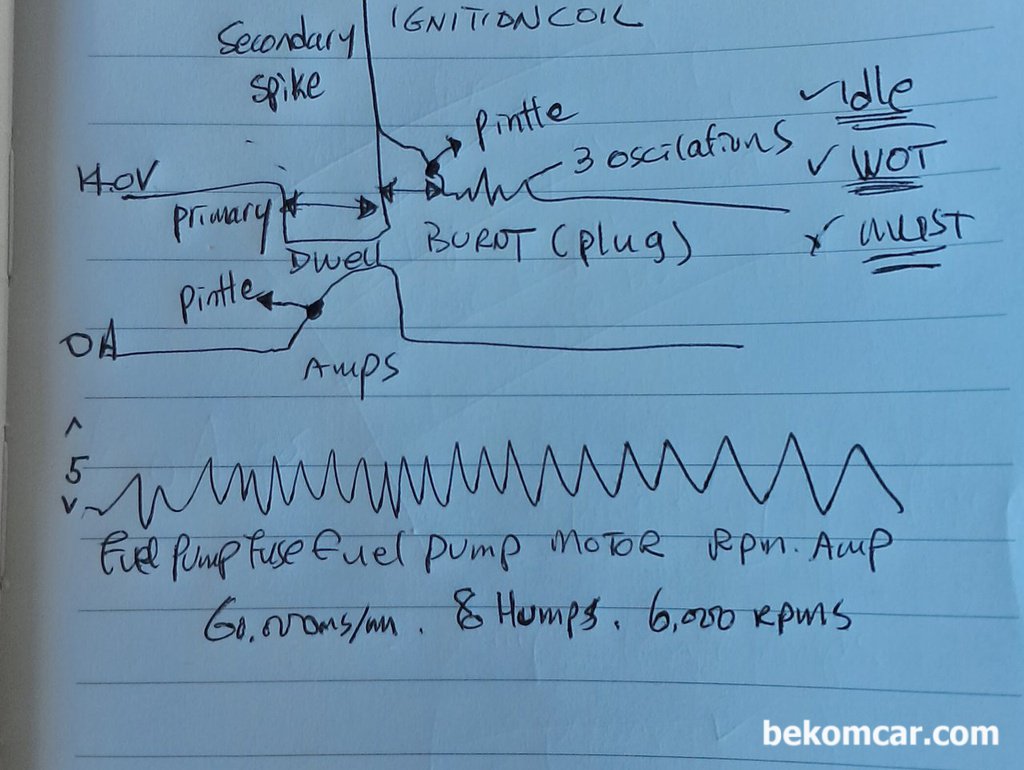 IGNITION COIL
Secondary
spike
pintle
Idle
3 oscilations
WOT
14.0V
primary
BURNT (plug)
Dwell
pintle
0A
Amps
^
5
v
fuel pump fuse fuel pump MOTOR Rpm. Amp
60,000ms/mn. 8 Humps. 6,000 rpms
bekomcar.com